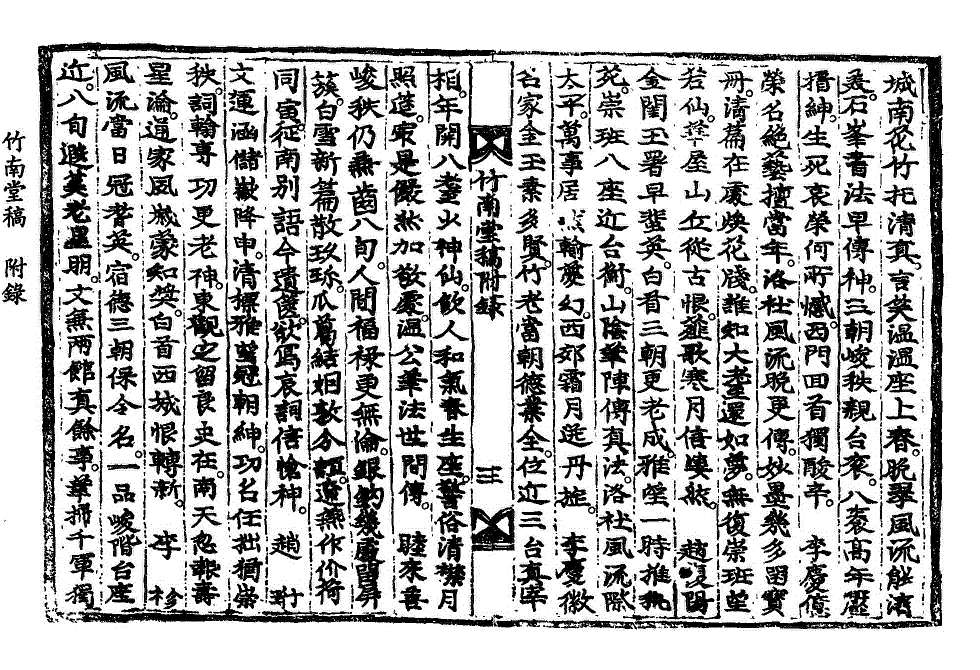 城南花竹托清真。言笑溫溫座上春。晩翠風流能濟
美。石峯書法早傳神。三朝峻秩親台袞。八袠高年
搢紳。生死哀榮何所憾。西門回首獨酸辛。 李慶億
榮名絶藝擅當年。洛社風流晩更傳。妙墨幾多留寶
冊。清篇在處煥花牋。誰知大耋還如夢。無復崇班望
若仙。華屋山丘從古恨。薤歌寒月倍悽然。 趙復陽
金閨玉署早蜚英。白首三朝更老成。雅望一時推
苑。崇班八座近台衡。山陰筆陣傳真法。洛社風流際
太平。萬事居然輸夢幻。西郊霜月送丹旌。 李慶徽
名家金玉素多賢。竹老當朝德業全。位近三台真宰
竹南堂稿附錄 三
相。年開八耋火神仙。飮人和氣春生座。警俗清襟月
照筵。東是儼然加敬處。溫公筆法世間傳。 睦來善
峻秩仍兼齒八旬。人間福祿更無倫。銀鈎幾處留屛
簇。白雪新篇散玖珎。瓜葛結姻敦分誼。遼燕作价荷
同寅。征南別語今遺篋。欲寫哀詞倍愴神。 趙珩
文運涵儲嶽降申。清標雅望冠朝紳。功名任拙猶崇
秩。詞翰專功更老神。東觀之留良史在。南天忽報壽
星淪。通家夙歲蒙知奬。白首西城恨轉新。 李袗
風流當日冠耆英。宿德三朝保令名。一品峻階台座
近。八旬遐筭老星明。文無兩館真餘事。筆掃千軍獨
竹南堂稿 附錄